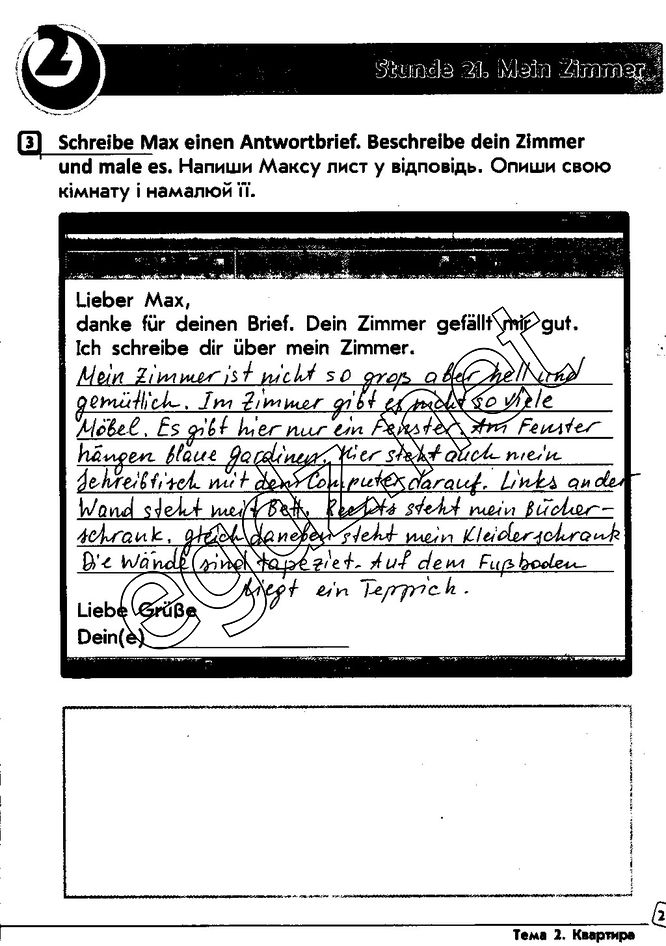 2
Stunde 21. Mein Zimmer
3 Schreibe Max einen Antwortbrief. Beschreibe dein Zimmer
und male es. Напиши Максу лист у відповідь. Опиши свою
кімнату і намалюй її.
Lieber Max,
danke für deinen Brief. Dein Zimmer gefällt mir gut.
Ich schreibe dir über mein Zimmer.
Mein Zimmer ist nicht so groß aber hell und
gemütlich. Im Zimmer gibt es nicht so viele
Möbel. Es gibt hier nur ein Fenster. Am Fenster
hängen blaue Gardinen. Hier steht auch mein
Schreibtisch mit dem Computer darauf. Links an der
Wand steht mein Bett. Rechts steht mein Bücher-
schrank, gleich daneben steht mein Kleiderschrank
Die Wände sind tapeziet. Auf dem Fußboden
liegt ein Teppich.
Liebe Grüße
Dein(e)
egdz.net
2
Тема 2. Квартира